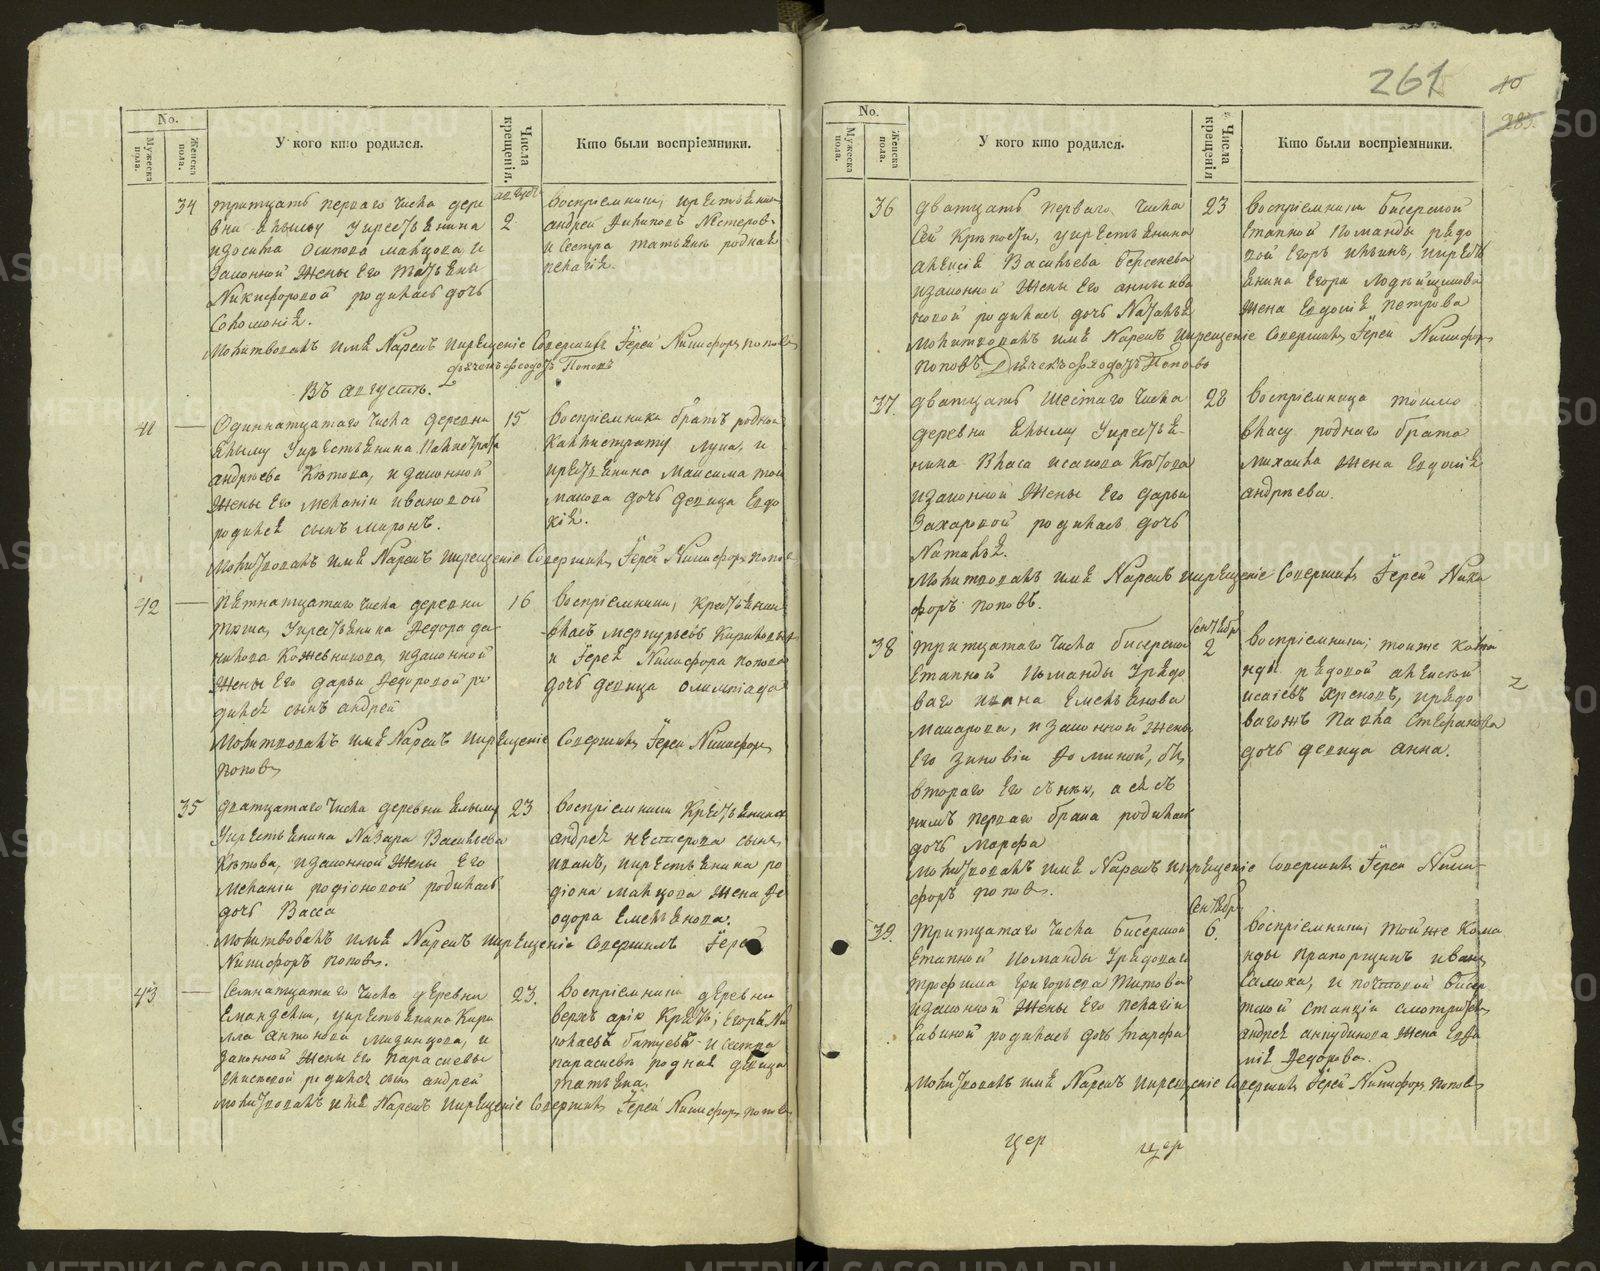 261
10
283.
No.
Мужеска пола.
Женска пола.
У кого кто родился.
Числа крещенія.
Кто были воспріемники.
34
тритцать перваго числа дере
вни
Осипова мальцова и
законной жены его татьяны
Никифоровой родилась дочь
Соломонія.
август
2
воспріемники, крестьянин
андрей Филиповъ Нестеровъ
и сестра татьяне родная
пелагія.
Молитвовалъ имя Нарекъ икрещеніе Совершилъ Іерей Никифоръ поповъ
дьячекъ Феодоръ Поповъ
Въ августѣ.
41
Одиннатцатаго числа деревни
андреева Кѣтова, и законной
жены его меланіи ивановой
родился сынъ миронъ.
15
воспріемники братъ родной
Каллистрату Лука, и
крестьянина Максима
дочь девица Евдо
кія.
Молитвовалъ имя Нарекъ икрещеніе Совершилъ Іерей Никифоръ поповъ
42
Пятнатцатаго числа деревни
укрестьянина Федора да
нилова Кожевникова, изаконной
жены его дарьи Федоровой ро
дился сынъ андрей
16
воспріемники, крестьянин
власъ меркурьевъ Кириловъ
и Іерея Никифора попова
дочь девица олимпіада
Молитвовалъ имя Нарекъ икрещеніе Совершилъ Іерей Никифоръ
поповъ
35
дватцатаго числа деревни
укрестьянина Назара Васильева
Кѣтова, изаконной жены его
меланіи родіоновой родилась
дочь Васса
23
воспріемники Крестьянина
андрея нестерова сынъ
иванъ, икрестьянина ро
діона мальцова жена Фе
одора Емельянова.
Молитвовалъ имя Нарекъ икрещеніе совершилъ Іерей
Никифоръ поповъ.
43
Семнатцатаго числа деревни
укрестьянина Кири
лла антонова и
законной жены его парасковьи
родился сынъ андрей
23.
воспріемники деревни
и сестра
родная девица
татьяна.
Молитвовалъ имя Нарекъ икрещеніе Совершилъ Іерей Никифоръ поповъ
No.
Мужеска пола.
Женска пола.
У кого кто родился.
Числа крещенія
Кто были воспріемники.
36
дватцать перваго числа
сей Крѣпости, укрестьянина
алексія Васильева берсенева
изаконной жены его анны ива
новой родилась дочь Наталья
23
воспріемники бисерской
Етапной Команды рядо
вой Егоръ ильинъ, икресть
янина Егора
жена Евдокія петрова
Молитвовалъ имя Нарекъ икрещеніе Совершилъ Іерей Никифоръ
поповъ Дьячекъ Феодоръ Поповъ
37.
дватцать шестаго числа
деревни укрестья-
нина Власа исакова Кѣтова
изаконной жены его дарьи
Захаровой родилась дочь
Наталья.
28
воспріемница токмо
власу роднаго брата
михаила жена Евдокія
андреева.
Молитвовалъ имя Нарекъ икрещеніе Совершилъ Іерей Ники
форъ поповъ.
38
тритцатаго числа бисерской
Етапной Команды Урядо
ваго ивана Емельянова
макарова, изаконной жены
его зиновіи Фоминой,
втораго его
нимъ перваго брака родилась
дочь марфа
сентябр
2
воспріемники; тоиже кома
нды рядовой алексѣй
исаіевъ Хреновъ, ирядо
вагожъ Павла Стефанова
дочь девица анна.
2
Молитвовалъ имя Нарекъ икрещеніе Совершилъ Іерей Ники-
форъ поповъ.
39.
тритцатаго числа бисерской
Етапной Команды Урядоваго
трофима Григорьева Титова
изаконной жены его пелагіи
Савиной родилась дочь марфа
сентябр
6.
Воспріемники; тойже Кома
нды прапорщикъ иванъ
Самока, и почтовой бисер
тской станціи смотрителя
андрея анкудинова жена Евдо
кія Федорова.
Молитвовалъ имя Нарекъ икрещеніе Совершилъ Іерей Никифоръ поповъ
цер
цер
METRIKI.GASO-URAL.RU